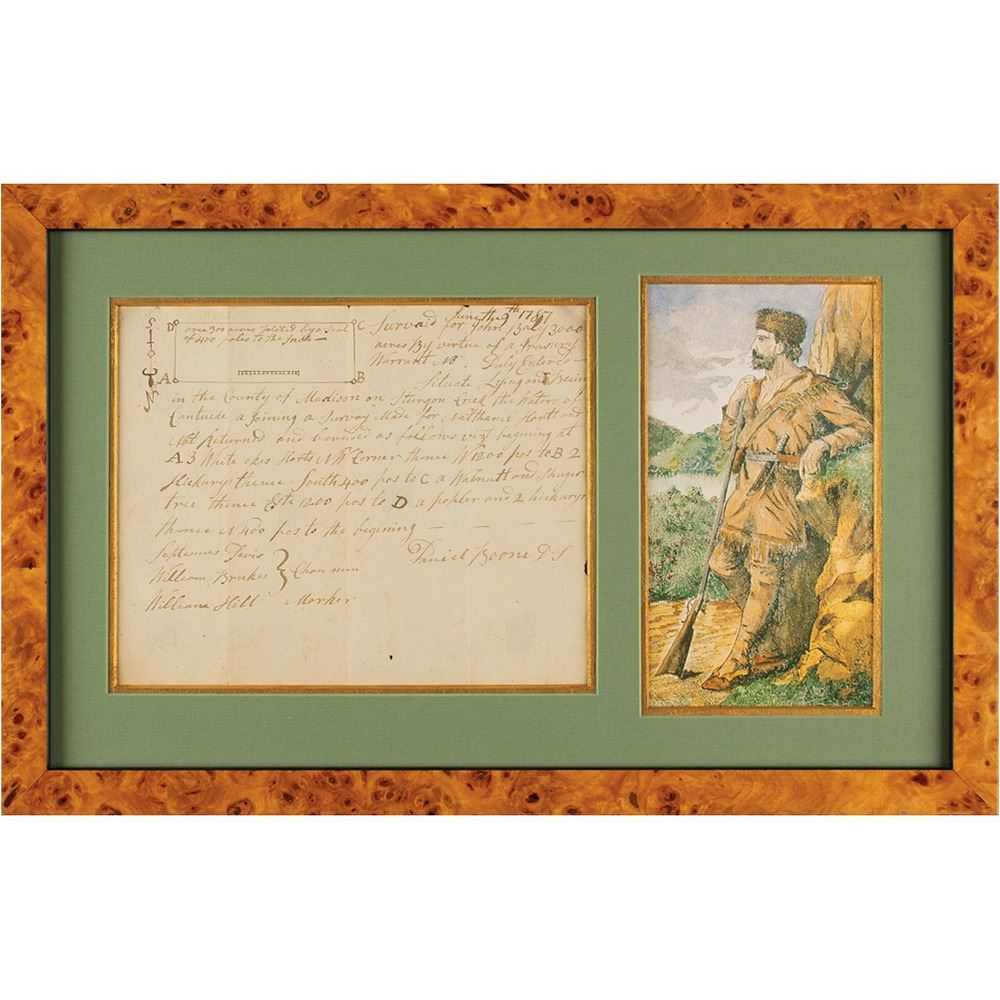 June the 9th 1787
S D C
area 300 acres
of 400 poles to the Inch —
A B
N
Survaid for John Baly 3000
acres By virtue of a treasury
Warrant No. Duly Entered —
Situate Lying and Beein
in the County of Madison on Sturgon Crick the Waters of
Cantucke a Joining a Survay Made for Nathanel Hart and
Not Returned and bounded as follows vizt begining at
A 3 White okes Harts NW Corner thence W 1200 pos to B 2
Hickurys thence South 400 pos to C a Walnutt and Shuger
tree thence Est 1200 pos to D a popler and 2 hickurys
thence N 400 pos to the begining — — — —
Septemus Davis
William Brukes } Chan min
William Hill Marker
Daniel Boone D S